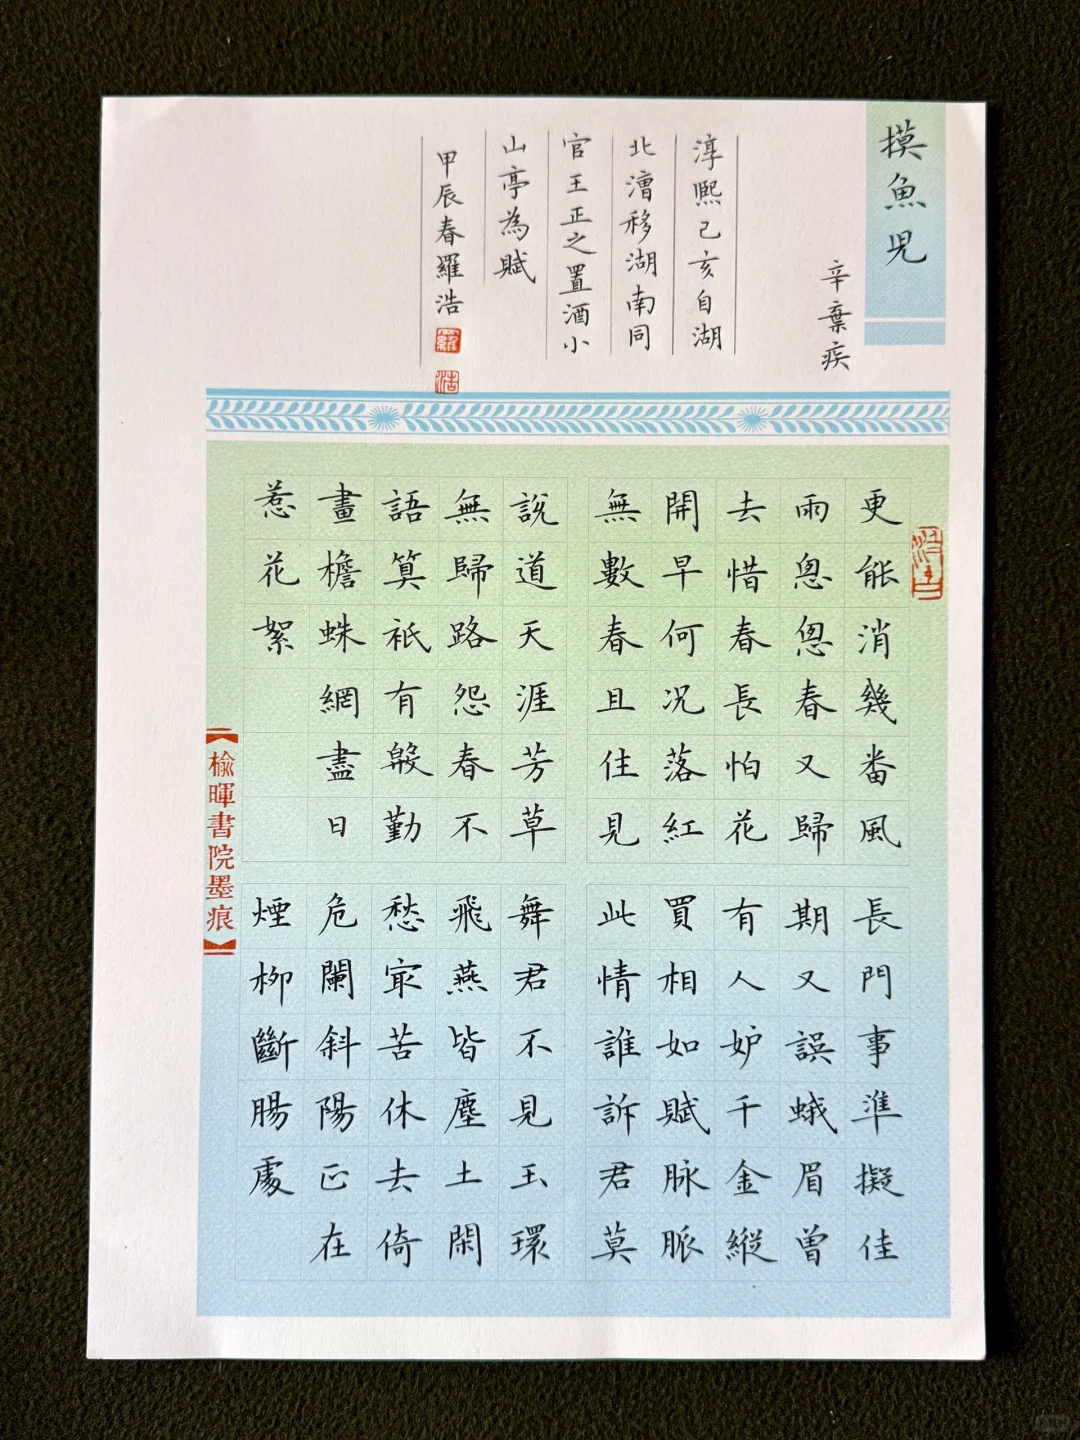 摸魚児
辛棄疾
淳熙己亥自湖
北漕移湖南同
官王正之置酒小
山亭為賦
甲辰春羅浩
羅
浩
更能消幾番風
雨恖恖春又歸
去惜春長怕花
開早何况落紅
無數春且住見
說道天涯芳草
無歸路怨春不
語算衹有殷勤
畫檐蛛網盡日
惹花絮
長門事準擬佳
期又誤蛾眉曾
有人妒千金縱
買相如賦脉脈
此情誰訴君莫
舞君不見玉環
飛燕皆塵土閑
愁冣苦休去倚
危闌斜陽正在
煙柳斷腸處
【榆暉書院墨痕】